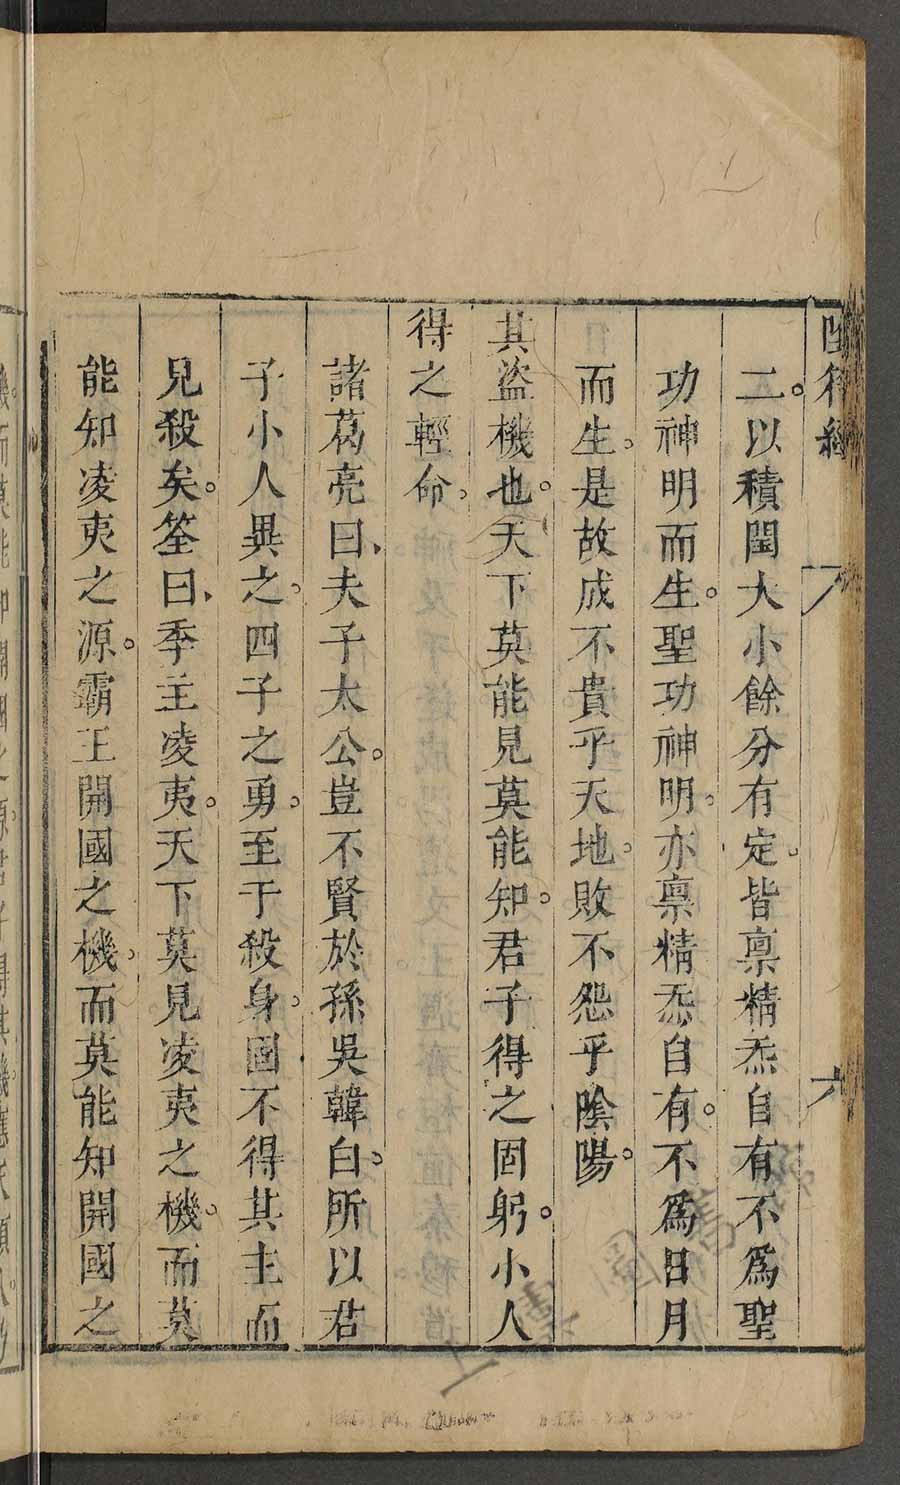 陰符經 六
二。以積閏大小餘分有定。皆稟精炁自有不爲聖
功神明而生。聖功神明。亦稟精炁自有。不爲日月
而生。是故成不貴乎天地。敗不怨乎陰陽。
其盜機也。天下莫能見莫能知。君子得之固躬。小人
得之輕命。
諸葛亮曰、夫子太公。豈不賢於孫吳韓白。所以君
子小人異之。四子之勇。至于殺身。國不得其主而
見殺矣。筌曰、季主凌夷。天下莫見凌夷之機。而莫
能知凌夷之源。霸王開國之機。而莫能知開國之